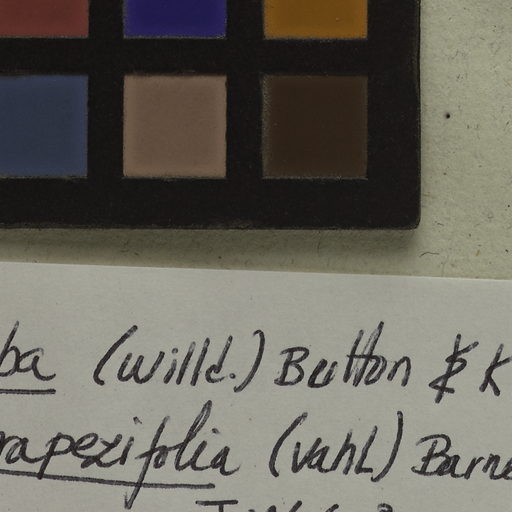 ba (Willd.) Button & K
rapezifolia (Vahl) Barne